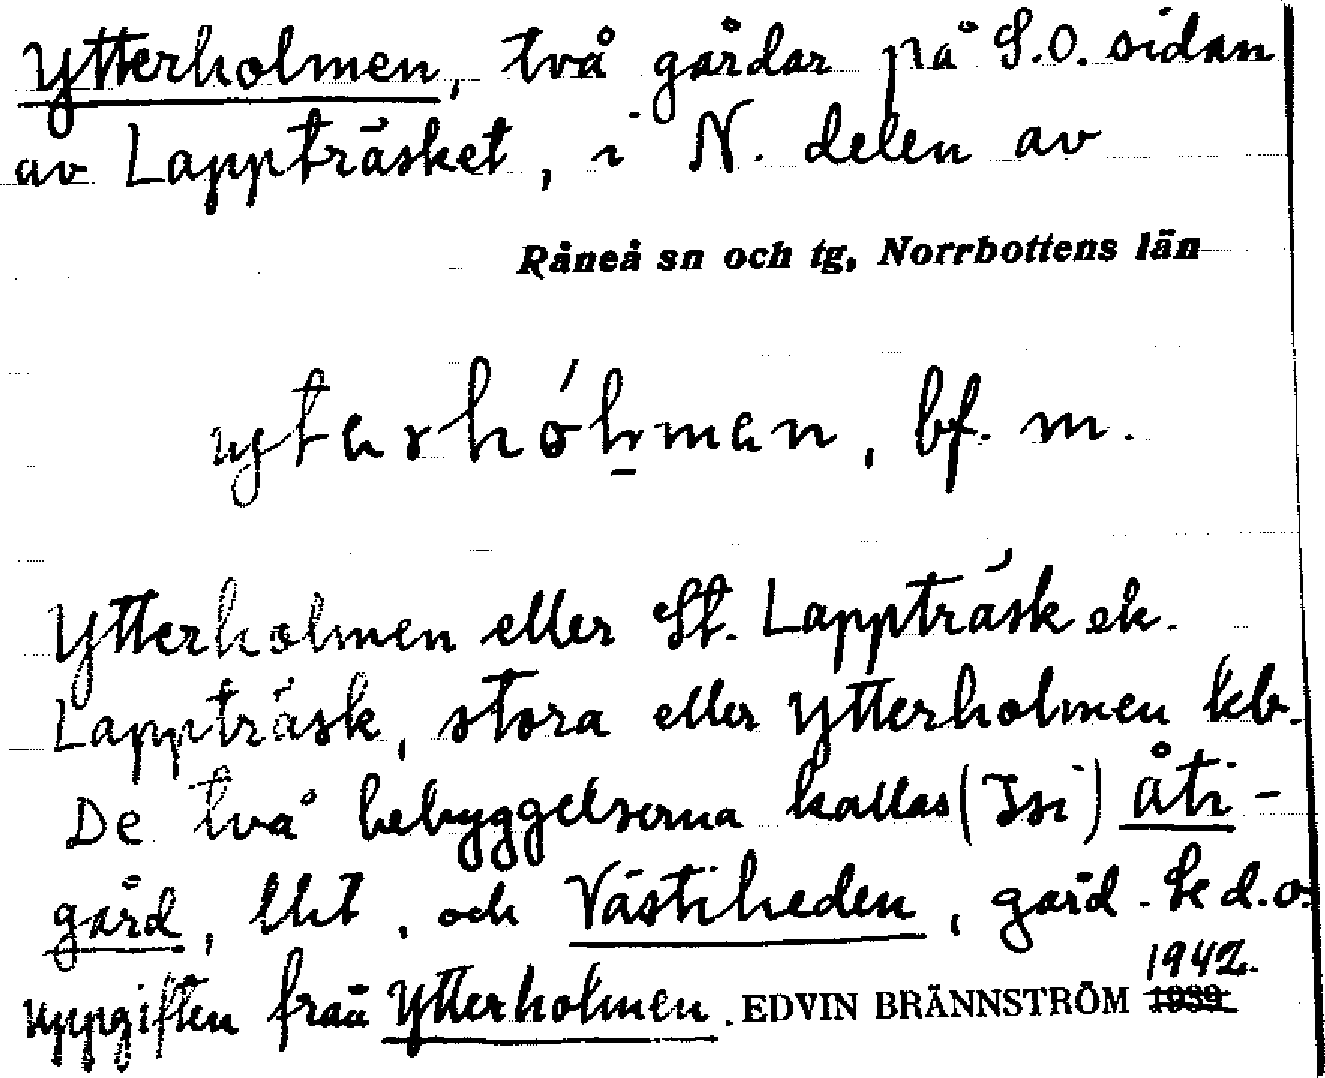 Ytterholmen, två gårdar på S.O. sidan
av Lappträsket, i N. delen av
Råneå sn och tg, Norrbottens län
bf. m.
Ytterholmen eller St. Lappträsk ek.
Lappträsk, stora eller Ytterholmen kb.
De två bebyggelserna kallas (Isi) åti-
gård, lht. och Västiheden, gård. Se d.o.
uppgiften från Ytterholmen. EDVIN BRÄNNSTRÖM 1942. 1939